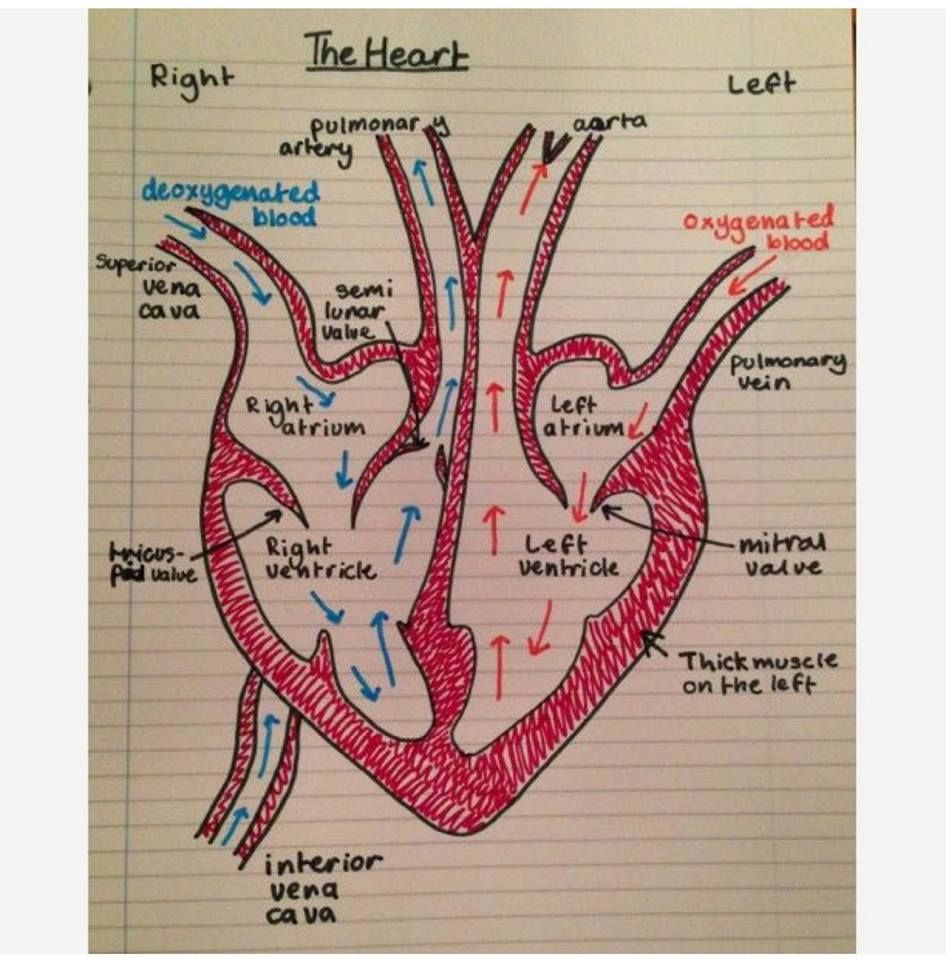 The Heart
Right
Left
pulmonary
artery
aorta
deoxygenated
blood
oxygenated
blood
Superior
vena
cava
semi
lunar
valve
pulmonary
vein
Right
atrium
Left
atrium
tricus-
pid valve
Right
ventricle
Left
ventricle
mitral
valve
Thick muscle
on the left
interior
vena
cava